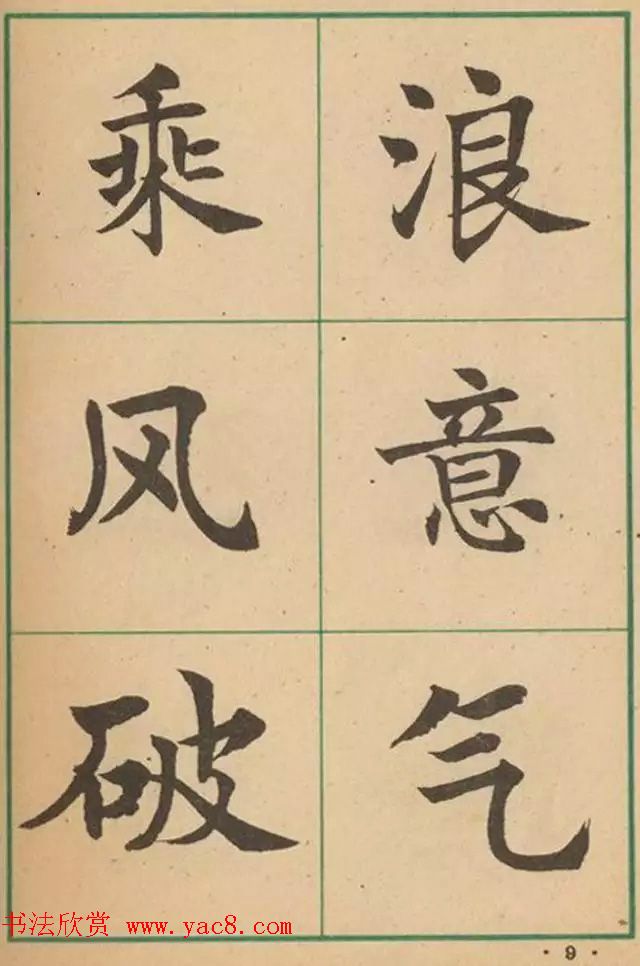 乘风破
浪意气
书法欣赏 www.yac8.com
·9·